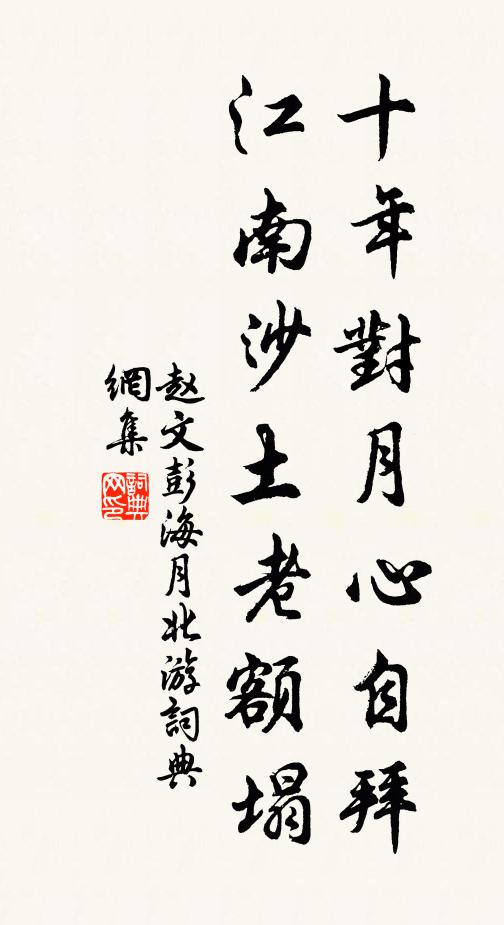 十年對月心自拜
江南沙土老額塌
赵文彭海月北游詞典
網集
詞典
网印